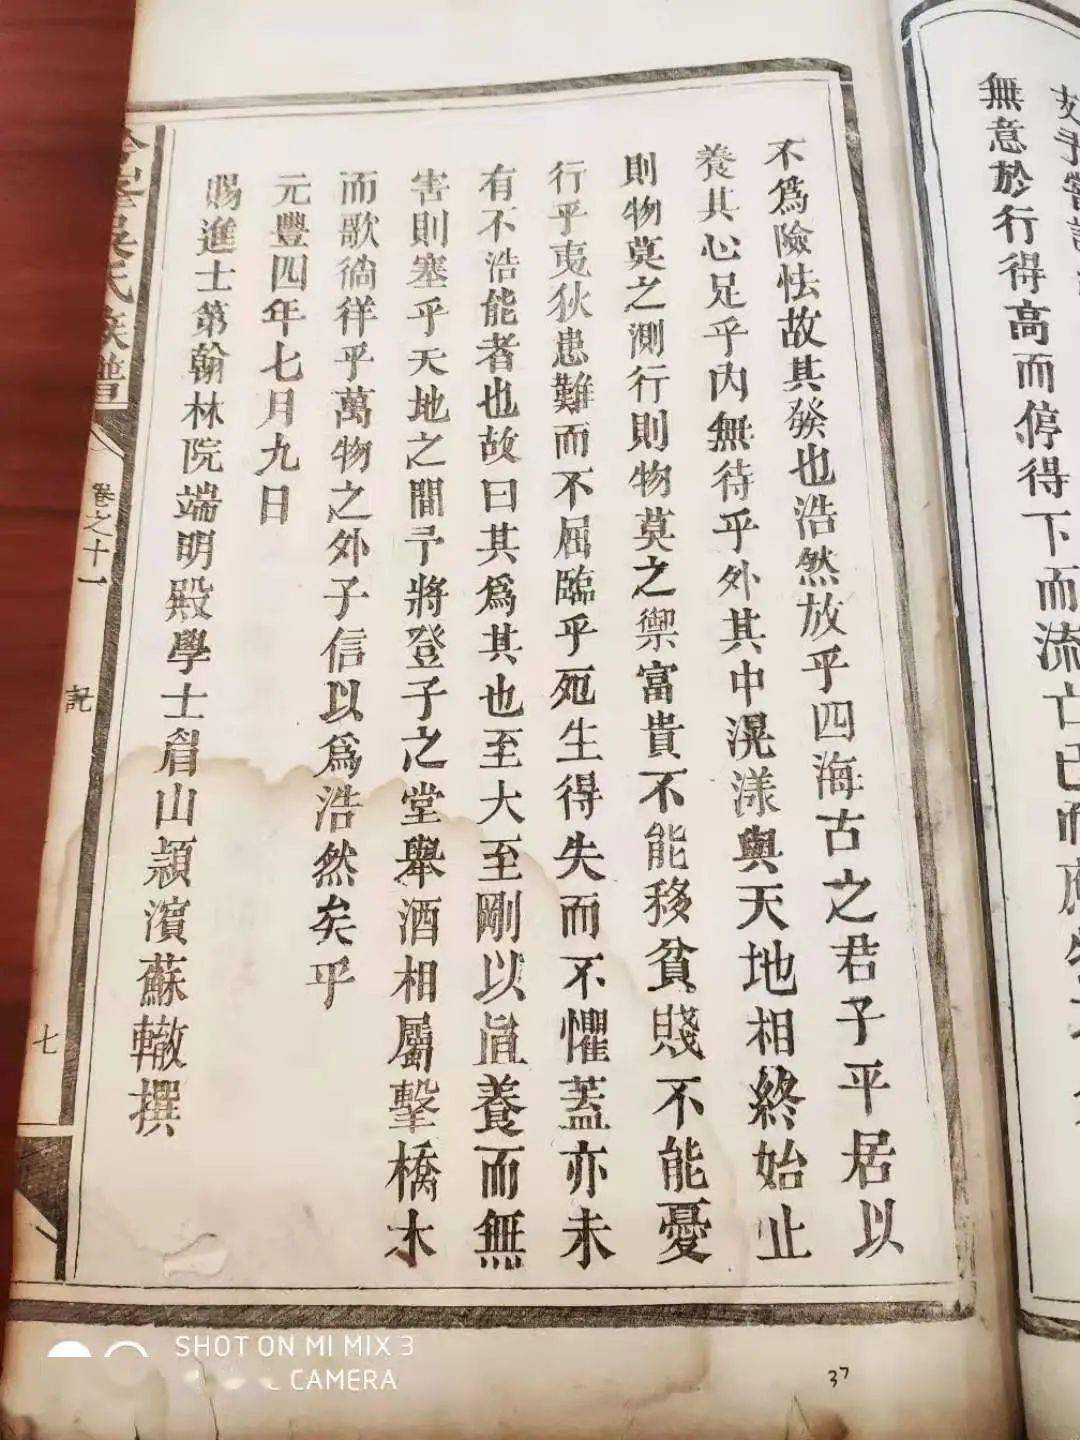 无意於行得高而停得下而流亡已而
不爲險怯故其發也浩然放乎四海古之君子平居以
養其心足乎內無待乎外其中滉漾與天地相終始止
則物莫之測行則物莫之禦富貴不能移貧賤不能憂
行乎夷狄患難而不屈臨乎死生得失而不懼蓋亦未
有不浩能者也故曰其爲其也至大至剛以直養而無
害則塞乎天地之間予將登子之堂舉酒相屬擊槁木
而歌徜徉乎萬物之外子信以爲浩然矣乎
元豐四年七月九日
賜進士第翰林院端明殿學士眉山潁濱蘇轍撰
吳氏族譜
卷之十一
記
七
37
SHOT ON MI MIX 3
CAMERA